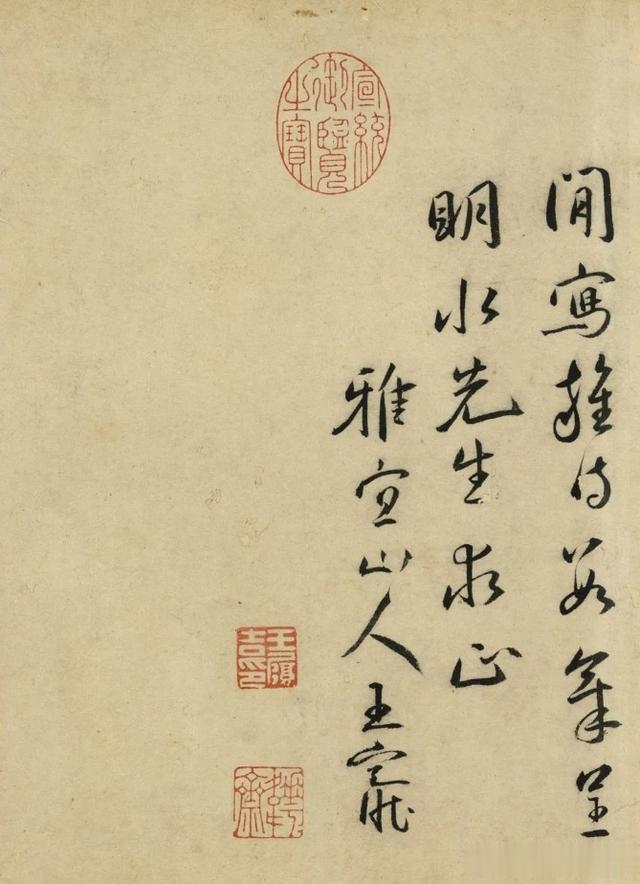 閒寫雜詩數章呈
明水先生求正
雅宜山人王寵
宣統御覽之寶
王履吉印